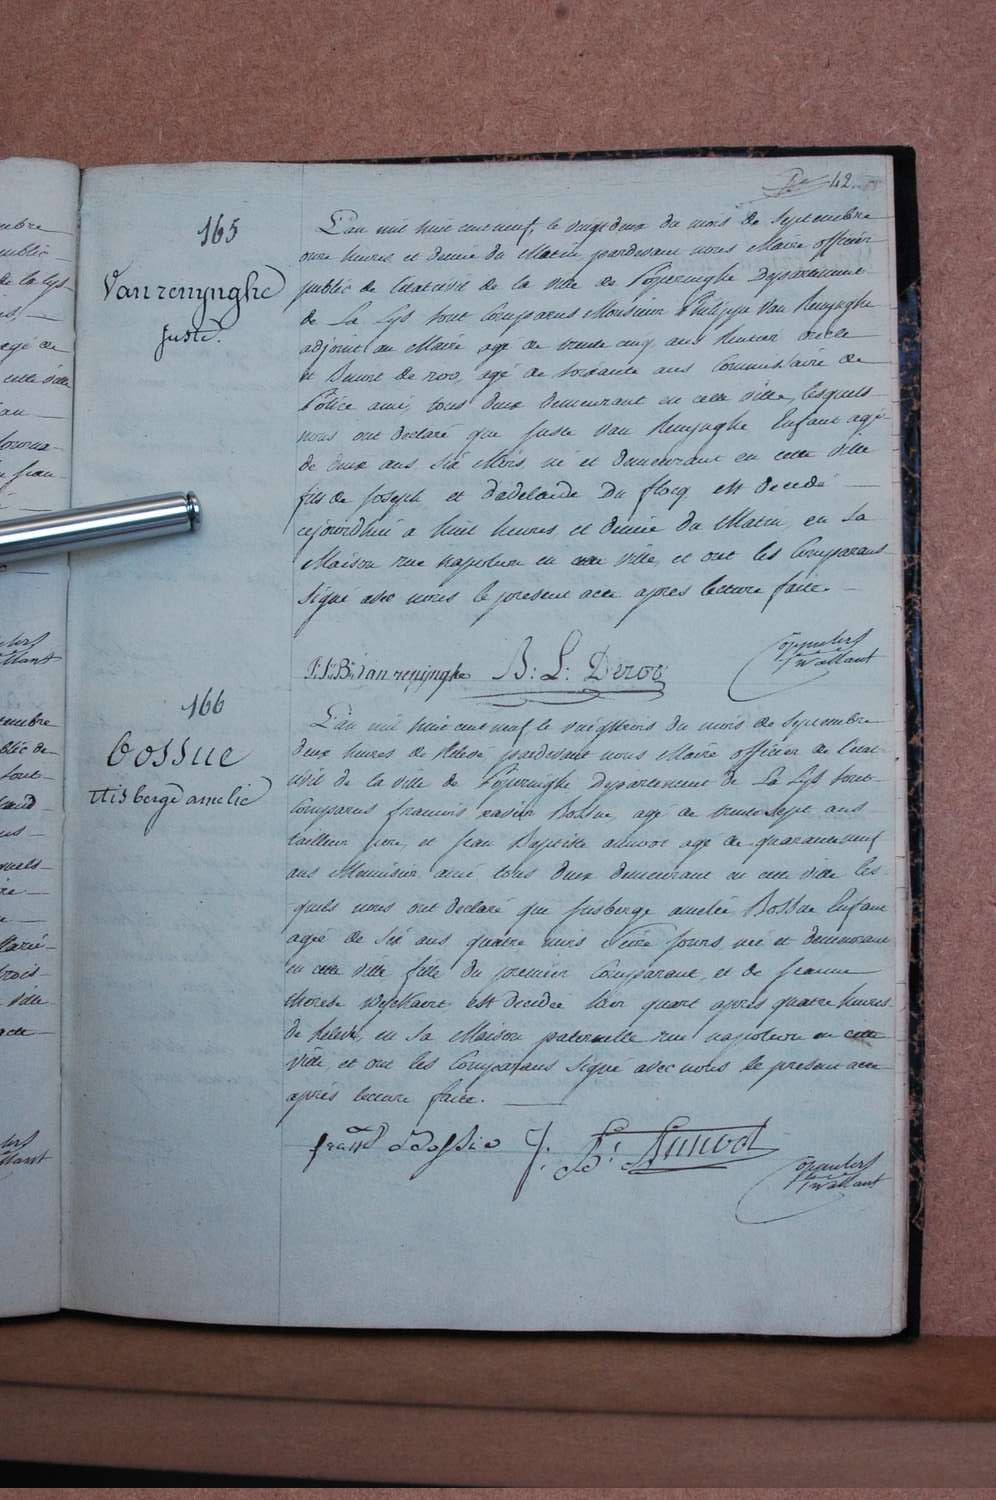 42
165
Vanrenynghe
Juste.
L'an mil huit cent neuf, le vingt deux du mois de Septembre
onze heures et demie du Matin pardevant nous Maire officier
public de l'état civil de la ville de Poperinghe Departement
de La Lys sont Comparus Monsieur Philippe Van Renynghe
adjoint au Maire agé de trente cinq ans Rentier oncle
et Benoit de roo, agé de soixante ans Commissaire de
Police ami, tous deux demeurant en cette ville, lesquels
nous ont declaré que Juste Van Renynghe Enfant agé
de deux ans six Mois né et demeurant en cette ville
fils de Joseph et d'adelaide Du flocq est decedé
cejourdhui a huit heures et demie du Matin, en Sa
Maison rue napoleon en cette ville, et ont les Comparans
Signé avec nous le present acte apres lecture faite.
P: J: B: Van renynghe B: L: Deroo
166
Bossue
Itisberge amelie
L'an mil huit cent neuf le vingt trois du mois de Septembre
deux heures de Relevé pardevant nous Maire officier de l'état
civil de la ville de Poperinghe Departement de La Lys sont
Comparus francois xavier Bossue, agé de trente Sept ans
tailleur pere, et Jean Baptiste annoot agé de quarante neuf
ans Menuisier ami tous deux demeurant en cette ville les
quels nous ont declaré que Itisberge amelie Bossue Enfant
agée de Six ans quatre mois jours née et demeurant
en cette ville fille du premier Comparant, et de
therese est decedée hier quart apres quatre heures
de Relevé, en Sa Maison paternelle rue napoleon en cette
ville, et ont les Comparans Signé avec nous le present acte
aprés lecture faite.
J: B: Annoot